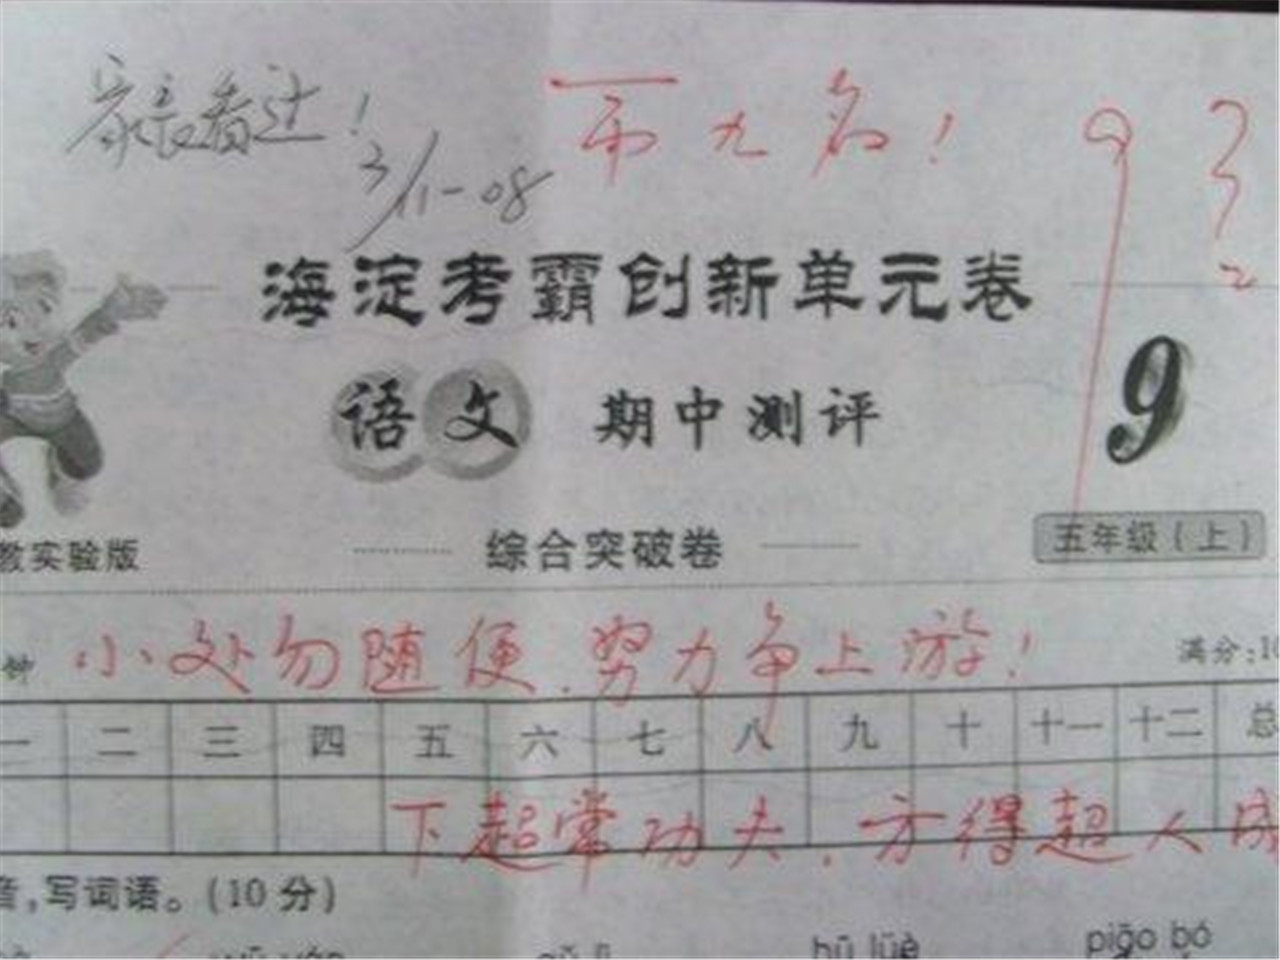 家长看过！
3/11-08
第九名！
93
海淀考霸创新单元卷
语文 期中测评
9
教实验版
综合突破卷
五年级（上）
钟
小处勿随便，努力争上游！
满分：10
一 二 三 四 五 六 七 八 九 十 十一 十二 总
下超常功夫，方得超人成
音，写词语。（10分）
hū lüè
piāo bó